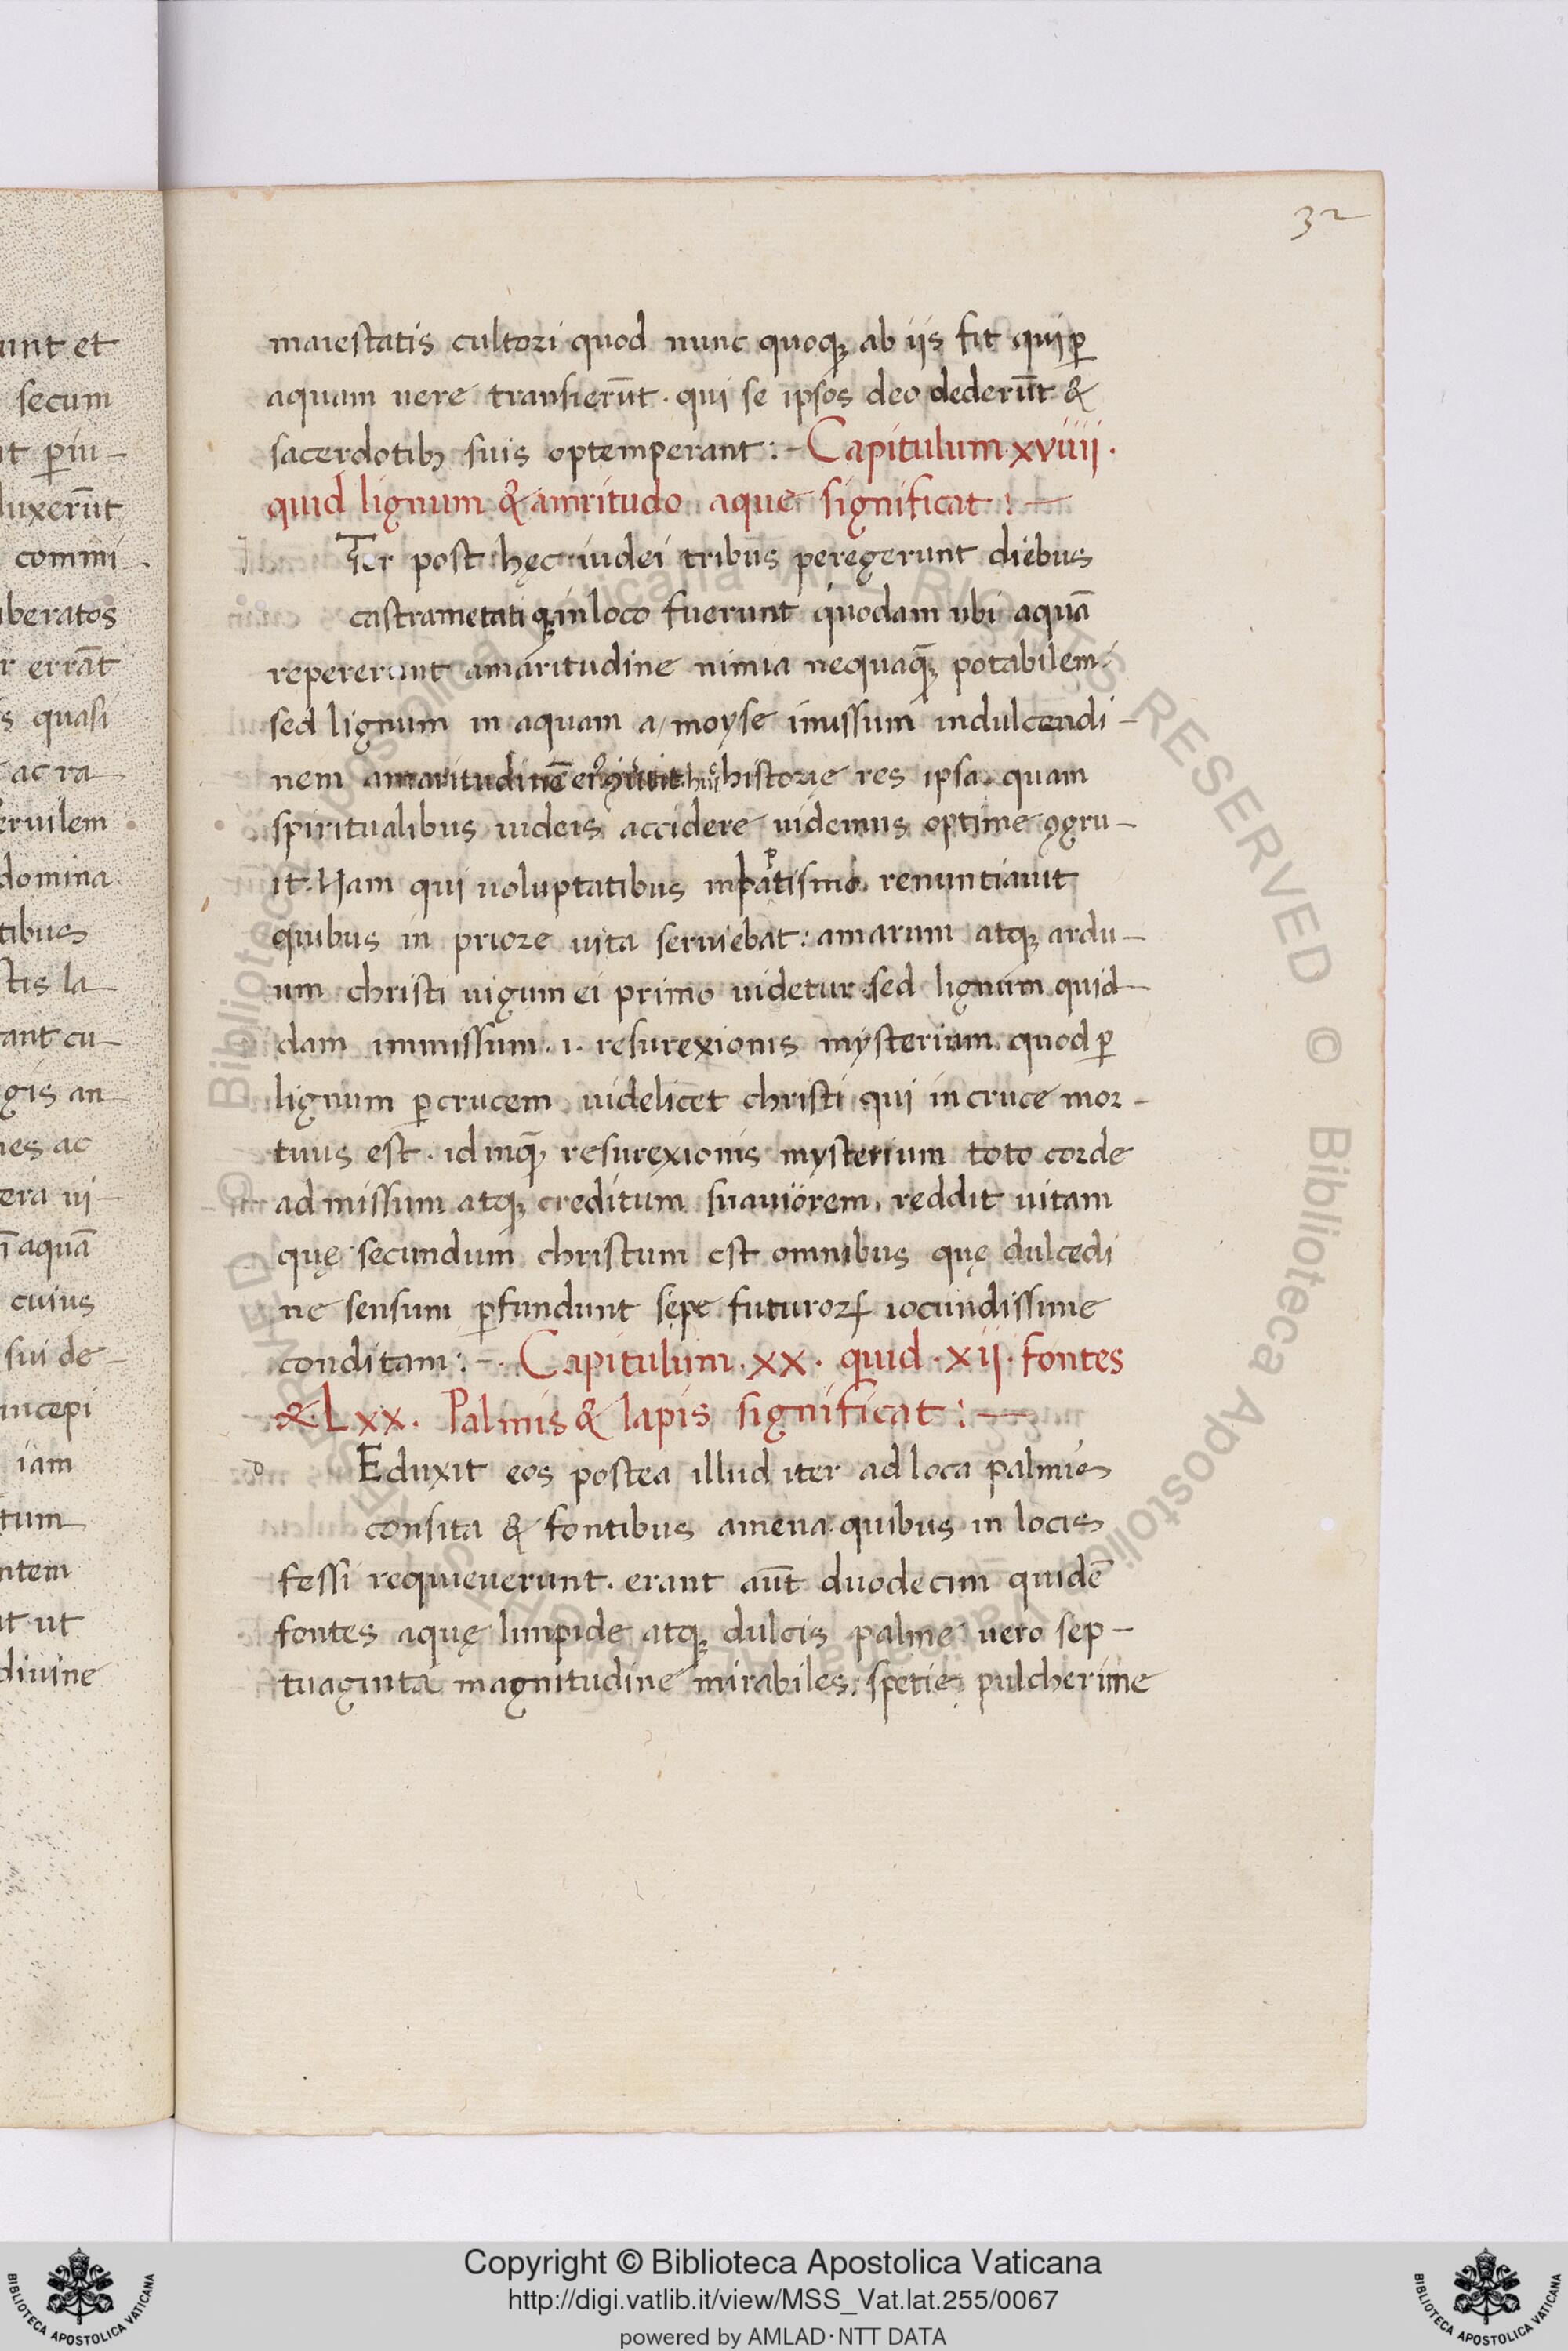 32
maiestatis cultori quod nunc quoqꝫ ab iis fit qui ꝑ
aquam uere transierūt · qui se ipsos deo dederūt &
sacerdotibꝫ suis optemperant : – Capitulum xviiij ·
quid lignum & amritudo aque significat : —
Iter post hęc iudei tribus peregerunt diebus
castrametati qꝫ in loco fuerunt quodam ubi aquā
repererunt amaritudine nimia nequaqꝫ potabilem ·
sed lignum in aquam a moyse inissum in dulcendi –
nem amaritudinē historie res ipsa · quam
spiritualibus iudeis accidere uidemus optime ꝯgru –
it · Nam qui uoluptatibus in baptismo renuntiauit
quibus in priore uita seruiebat : amarum atqꝫ ardu –
um christi uigum ei primo uidetur sed lignum quid –
dam immissum · i · resurexionis mysterium · quod ꝑ
lignum ꝑ crucem uidelicet christi qui in cruce mor –
tuus est · id inqꝫ resurexionis mysterium toto corde
admissum atqꝫ creditum suauiorem · reddit uitam
quę secundum christum est omnibus quę dulcedi
ne sensum ꝑfundunt sepe futuroꝝ iocundissime
conditam : – · Capitulum · xx · quid · xij · fontes
& Lxx · Palmis & lapis significat : —
Eduxit eos postea illud iter ad loca palmis
consita & fontibus amena quibus in locis
fessi requieuerunt · erant aūt duodecim quidē
fontes aquę limpide atqꝫ dulcis palme uero sep –
tuaginta magnitudine mirabiles · spetie pulcherime
Copyright © Biblioteca Apostolica Vaticana
http://digi.vatlib.it/view/MSS_Vat.lat.255/0067
powered by AMLAD·NTT DATA